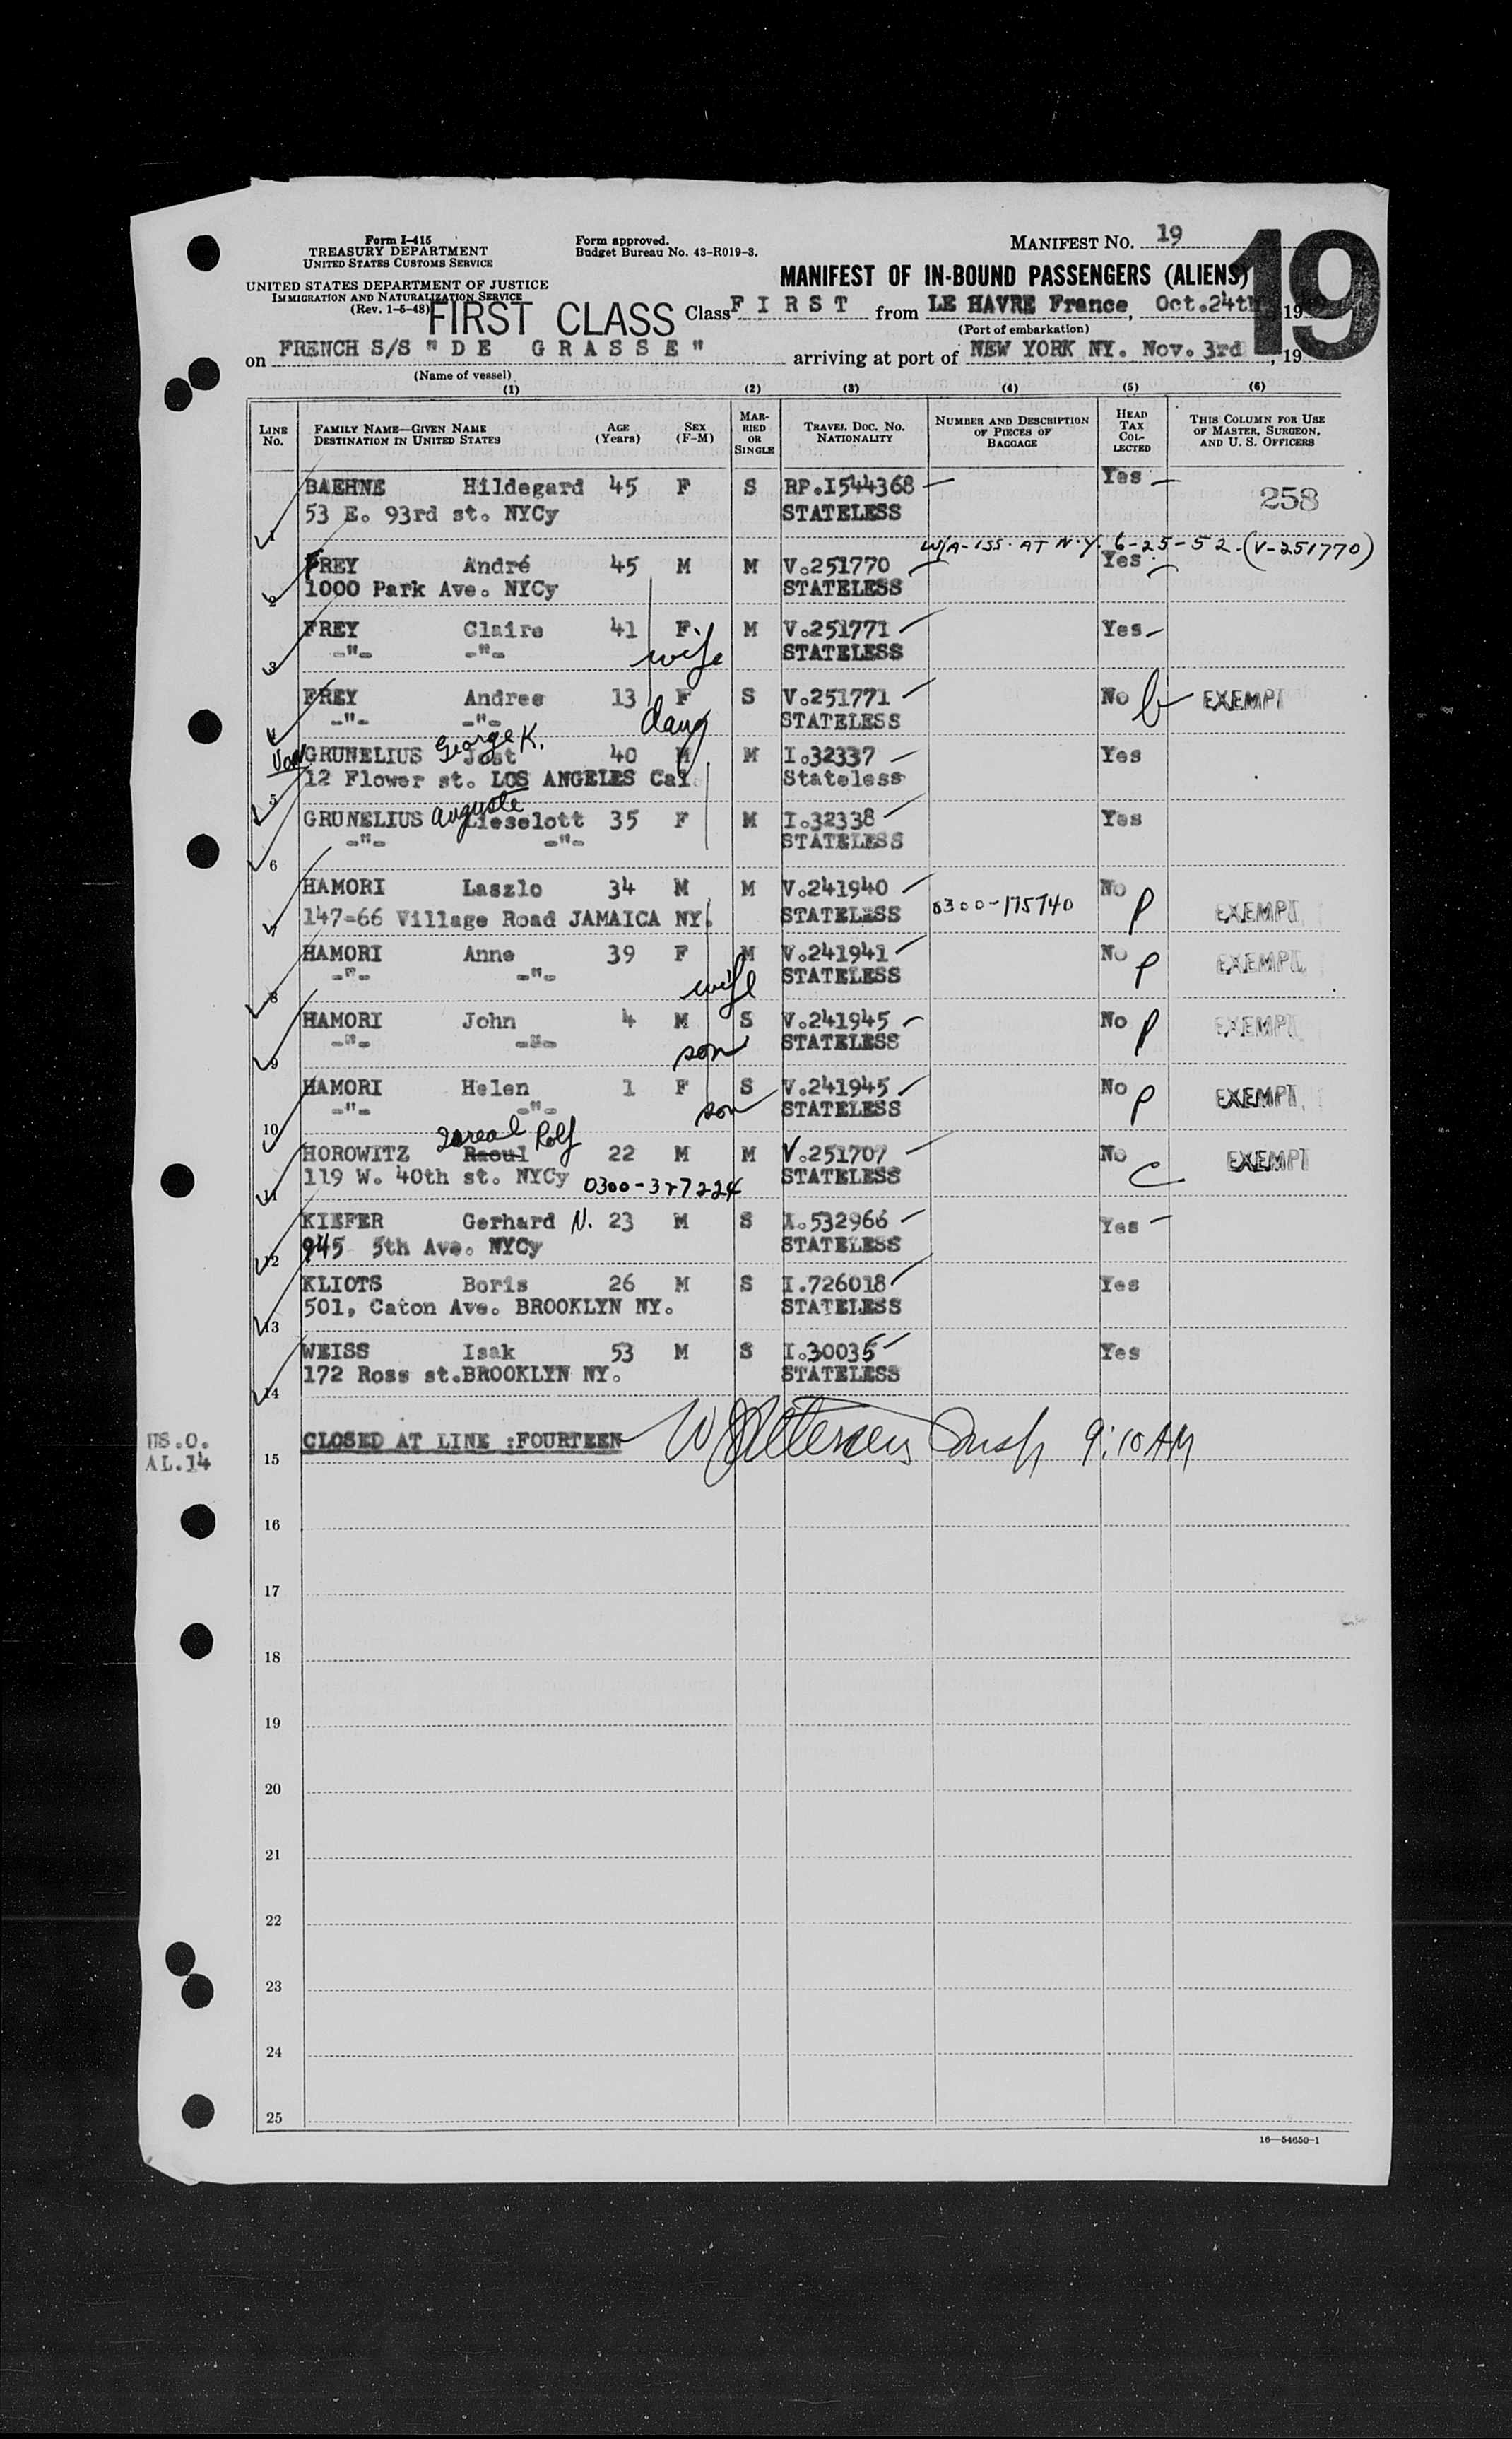 Form I-415
TREASURY DEPARTMENT
UNITED STATES CUSTOMS SERVICE
UNITED STATES DEPARTMENT OF JUSTICE
IMMIGRATION AND NATURALIZATION SERVICE
(Rev. 1-5-48)
Form approved.
Budget Bureau No. 43-R019-3.
MANIFEST NO. 19
19
MANIFEST OF IN-BOUND PASSENGERS (ALIENS)
FIRST CLASS
Class F I R S T from LE HAVRE France, Oct.24th, 19
(Port of embarkation)
on FRENCH S/S "DE GRASSE" arriving at port of NEW YORK NY. Nov. 3rd, 19
(Name of vessel)
(1) (2) (3) (4) (5) (6)
LINE No. FAMILY NAME—GIVEN NAME DESTINATION IN UNITED STATES AGE (Years) SEX (F-M) MARRIED OR SINGLE TRAVEL DOC. NO. NATIONALITY NUMBER AND DESCRIPTION OF PIECES OF BAGGAGE HEAD TAX COLLECTED THIS COLUMN FOR USE OF MASTER, SURGEON, AND U. S. OFFICERS
BAEHNE Hildegard 45 F S RP.I544368 Yes
258
1 53 E. 93rd st. NYCy STATELESS
W/A-ISS. AT N.Y. 6-25-52-(V-251770)
FREY André 45 M M V.251770 Yes
2 1000 Park Ave. NYCy STATELESS
FREY Claire 41 F. M V.251771 Yes
3 -"- -"- wife STATELESS
FREY Andree 13 F S V.251771 No b EXEMPT
4 -"- -"- daug STATELESS
Von GRUNELIUS George K. Jost 40 M M I.32337 Yes
5 12 Flower st. LOS ANGELES Cal. Stateless
GRUNELIUS Auguste Lieselott 35 F M I.32338 Yes
6 -"- -"- STATELESS
HAMORI Laszlo 34 M M V.241940 No P EXEMPT
7 147-66 Village Road JAMAICA NY. STATELESS 0300-175740
HAMORI Anne 39 F M V.241941 No P EXEMPT
8 -"- -"- wife STATELESS
HAMORI John 4 M S V.241945 No P EXEMPT
9 -"- -"- son STATELESS
HAMORI Helen 1 F S V.241945 No P EXEMPT
10 -"- -"- son STATELESS
Rolf
HOROWITZ Raoul 22 M M V.251707 No C EXEMPT
11 119 W. 40th st. NYCy 0300-327224 STATELESS
KIEFER Gerhard N. 23 M S I.532966 Yes
12 945 5th Ave. NYCy STATELESS
KLIOTS Boris 26 M S I.726018 Yes
13 501, Caton Ave. BROOKLYN NY. STATELESS
WEISS Isak 53 M S I.30035 Yes
14 172 Ross st.BROOKLYN NY. STATELESS
US.O.
AL.14
15 CLOSED AT LINE :FOURTEEN Insp 9:10 AM
16
17
18
19
20
21
22
23
24
25
16—54650-1